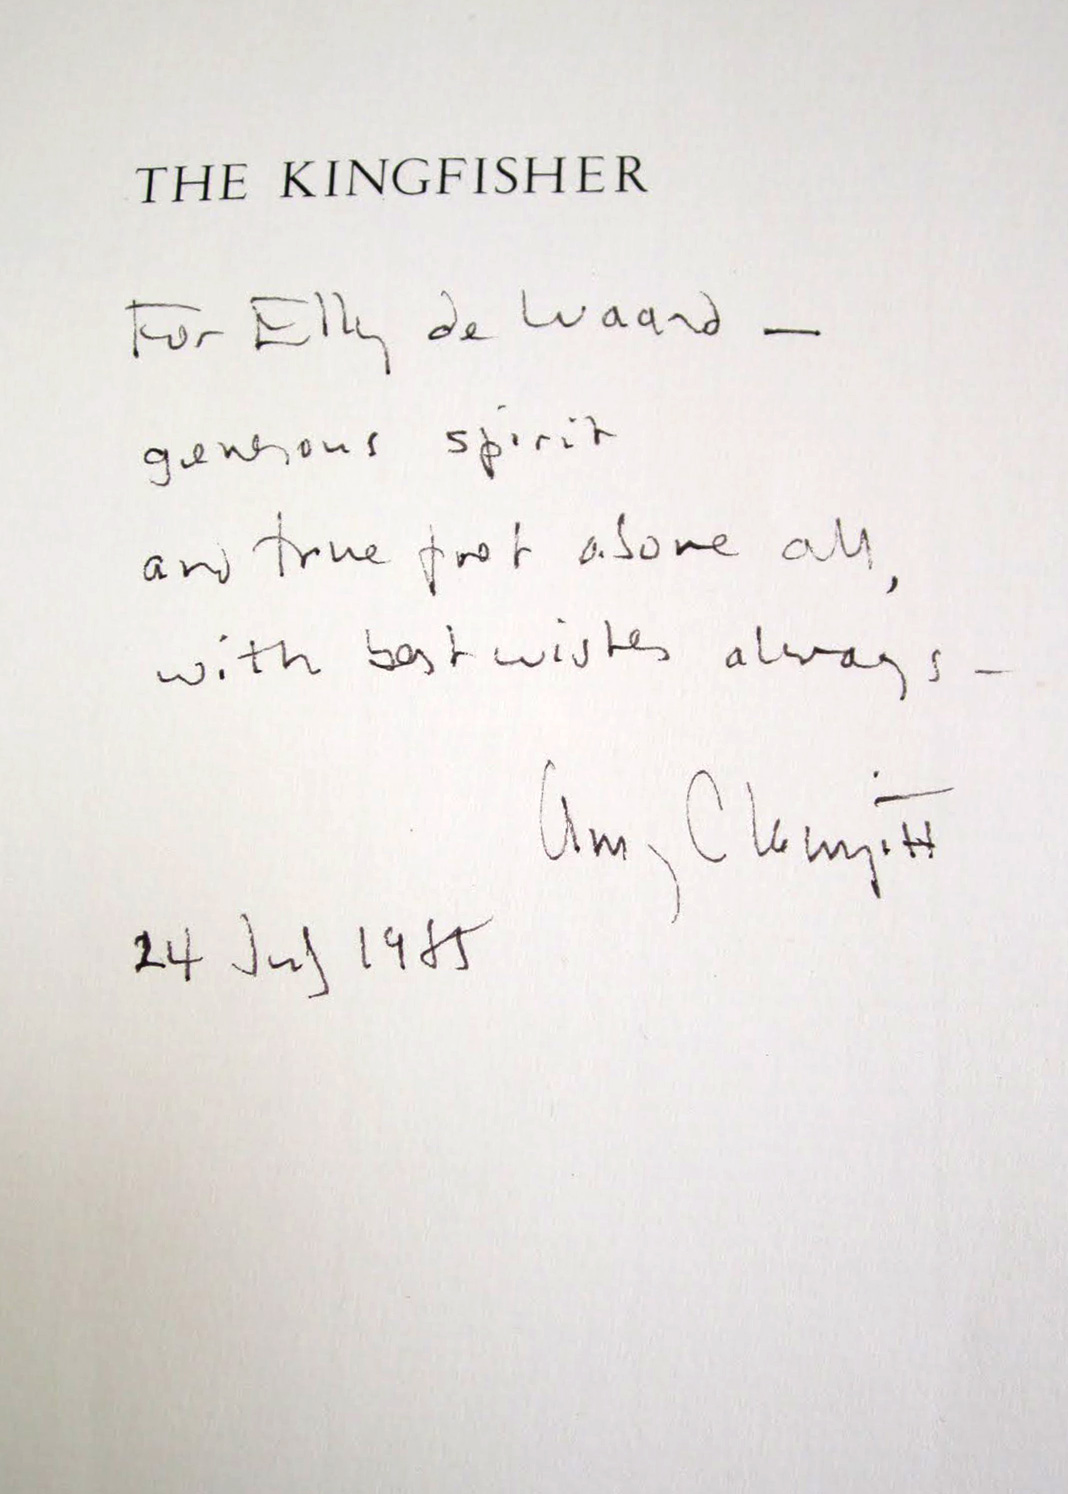 THE KINGFISHER
For Elly de Waard —
generous spirit
and true poet above all,
with best wishes always –
Amy Clampitt
24 July 1985